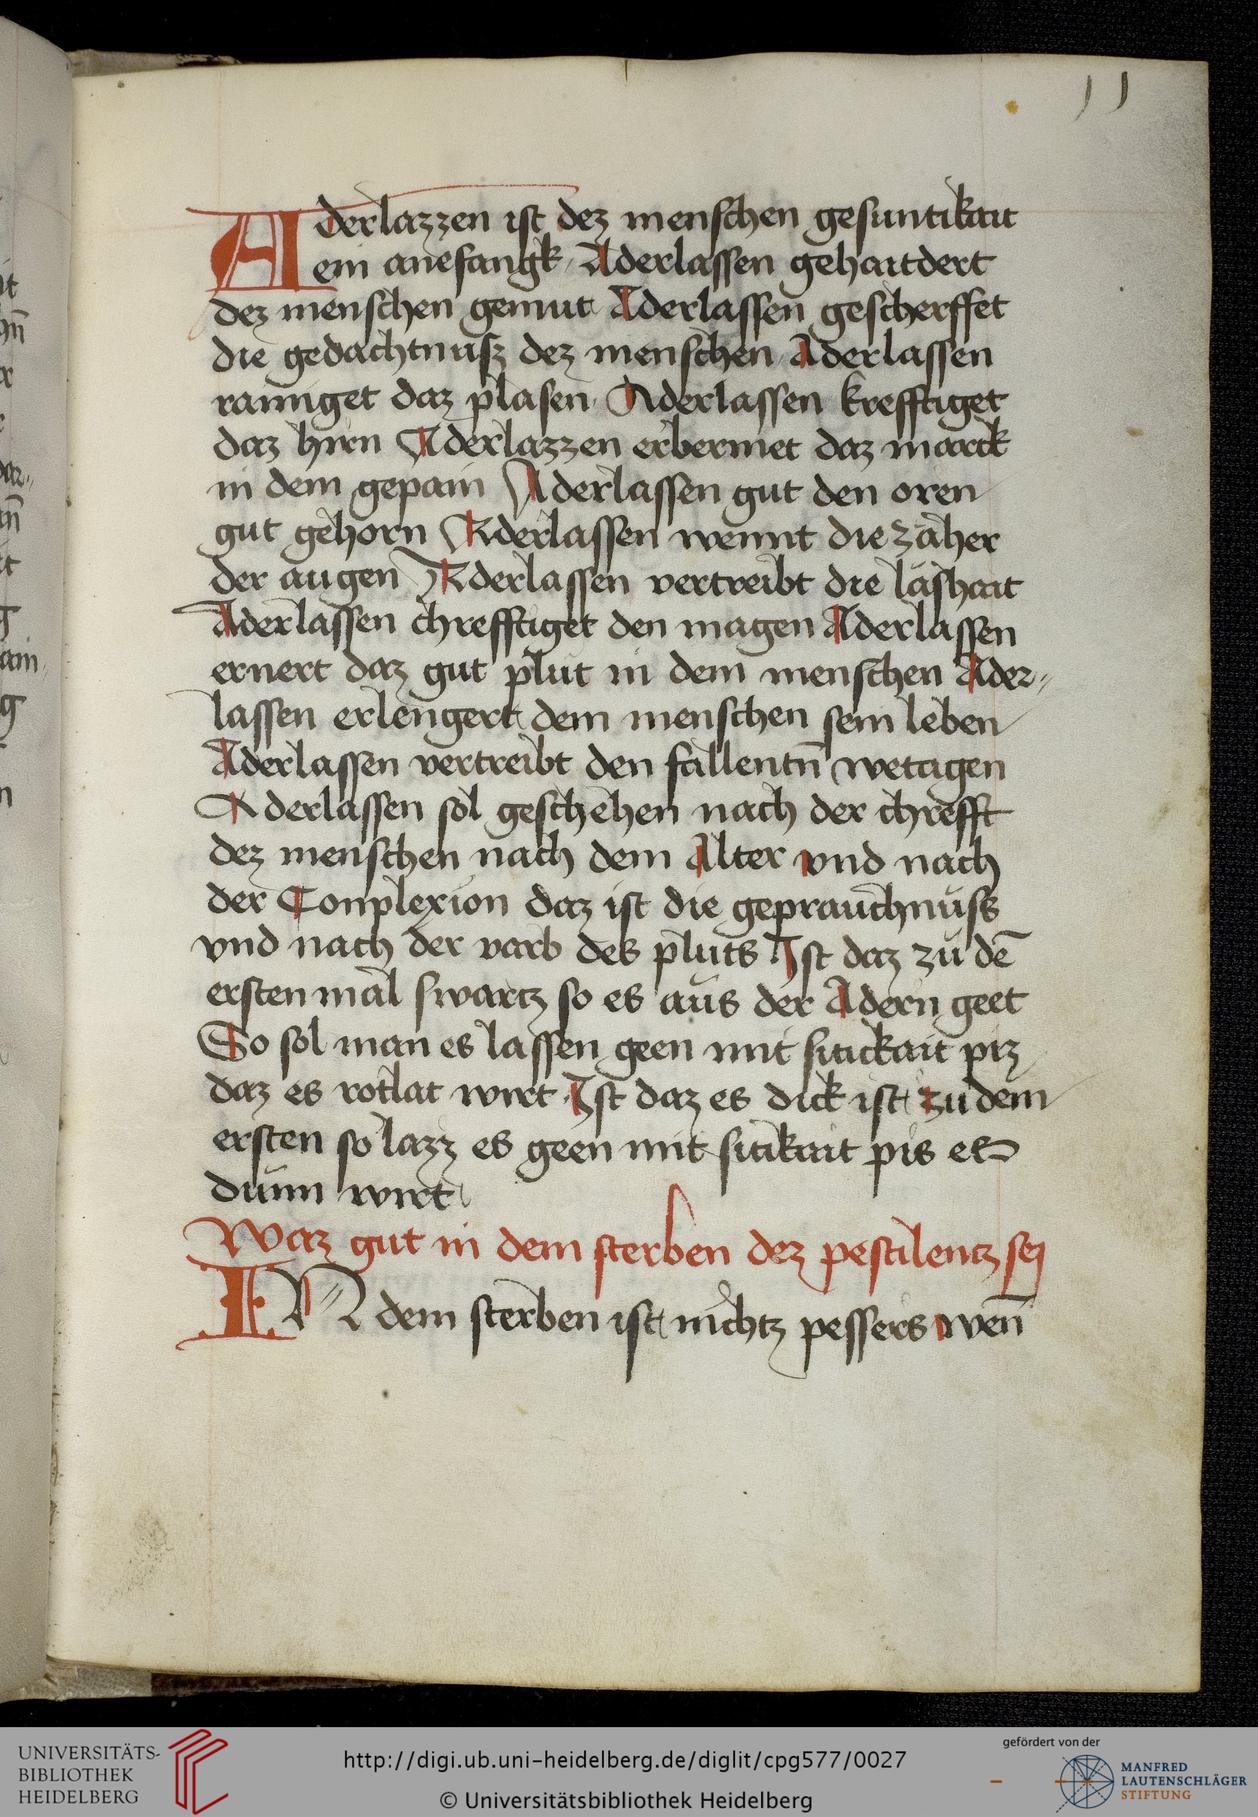 11
Aderlazzen ist dez menschen gesuntikait
ein anefangk Aderlassen gehaitdert
dez menschen gemut Aderlassen gescherffet
die gedachtnusz dez menschen Aderlassen
rainiget daz plasen Aderlassen krefftiget
daz hirn Aderlazzen erbermet daz marck
in dem gepain Aderlassen gut den oren
gut gehorn Aderlassen wennt die zäher
der augen Aderlassen vertreibt die läshait
Aderlassen chrefftiget den magen Aderlassen
ernert daz gut plut in dem menschen Ader-
lassen erlengert dem menschen sein leben
Aderlassen vertreibt den fallentn̄ wetagen
Aderlassen sol geschehen nach der chrefft
dez menschen nach dem Alter vnd nach
der Conplexion daz ist die geprauchnüss
vnd nach der varb des pluts Ist daz zu dē
ersten mal swartz so es aus der Adern geet
So sol man es lassen geen mit sitickait piz
daz es rotlat wirt Ist daz es dick ist zu dem
ersten so lazz es geen mit sitikait pis es
dünn wirt
Waz gut in dem sterben dez pestilentz sej
IN dem sterben ist nichtz pessers wen̄
UNIVERSITÄTS-
BIBLIOTHEK
HEIDELBERG
http://digi.ub.uni-heidelberg.de/diglit/cpg577/0027
© Universitätsbibliothek Heidelberg
gefördert von der
MANFRED
LAUTENSCHLÄGER
STIFTUNG